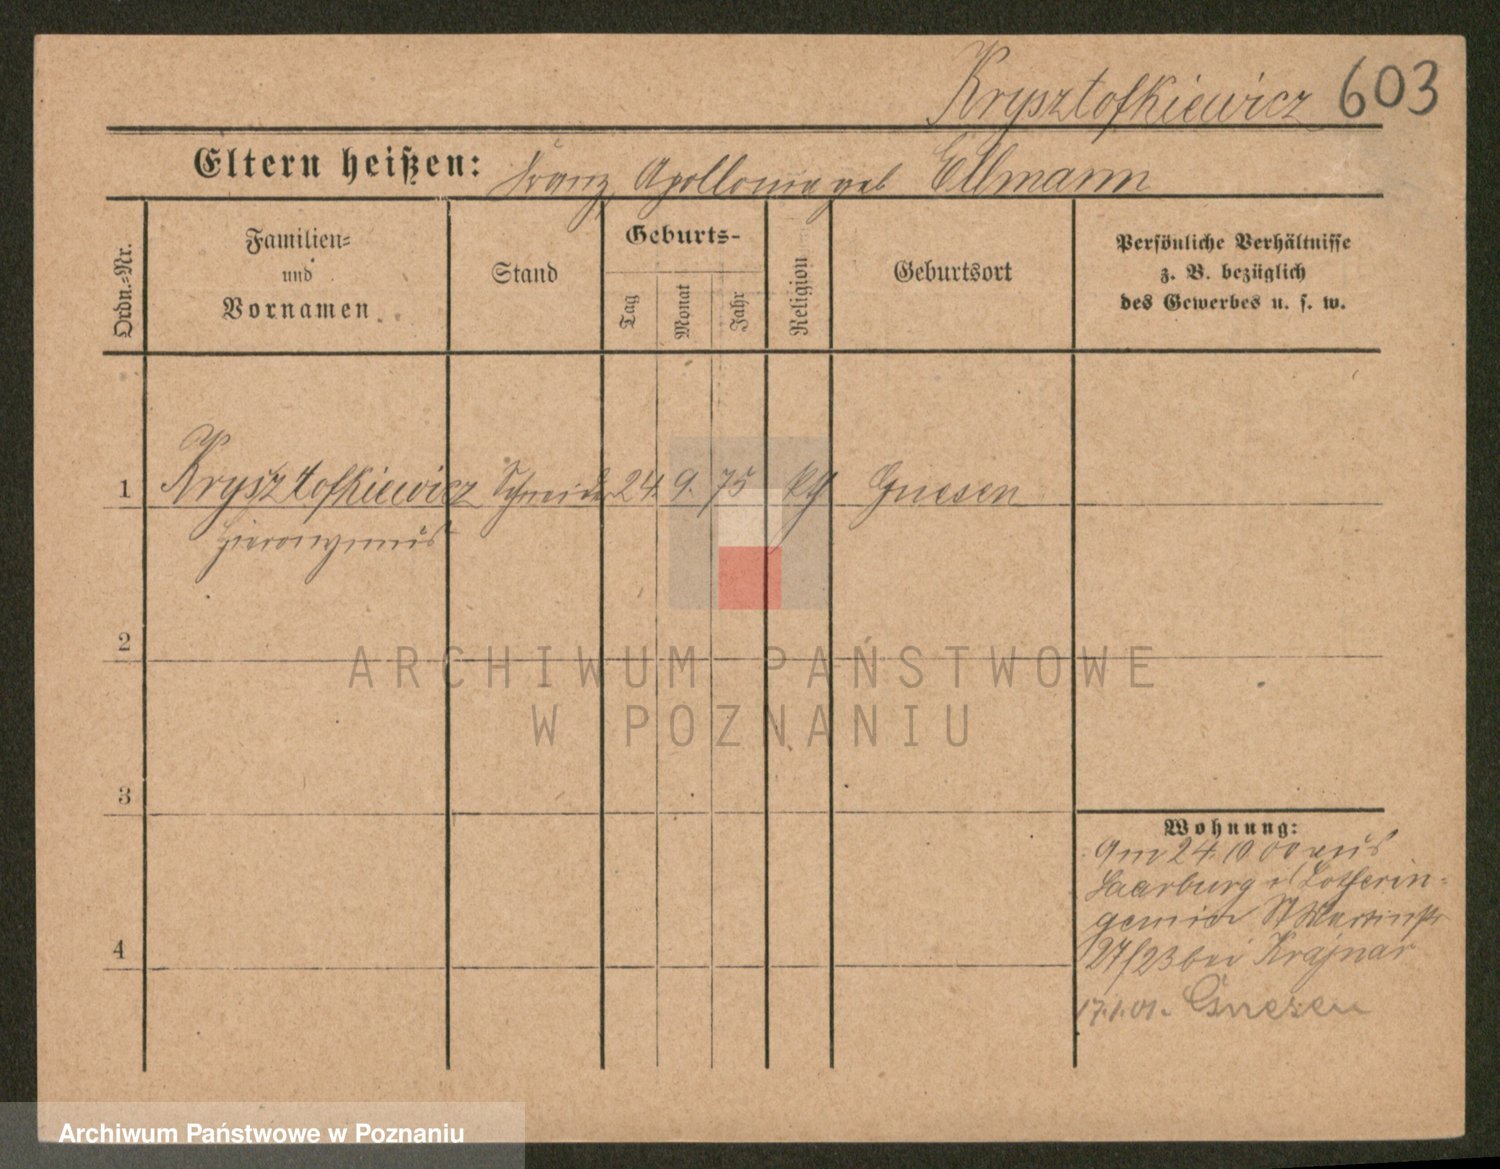 Krysztofkiewicz 603
Eltern heißen: Franz, Apollonia geb Ellmann
Ordn.-Nr.
Familien-
und
Vornamen
Stand
Geburts-
Tag
Monat
Jahr
Religion
Geburtsort
Persönliche Verhältnisse
z. B. bezüglich
des Gewerbes u. s. w.
1 Krysztofkiewicz Schneider 24. 9. 75 Gnesen
Hieronymus
2
3
4
ARCHIWUM PAŃSTWOWE
W POZNANIU
Wohnung:
Am 24. 10 00 aus
Saarburg i/ Lothrin-
gen St Martinstr
27/23 bei Krajnar
17.1.01. Gnesen
Archiwum Państwowe w Poznaniu